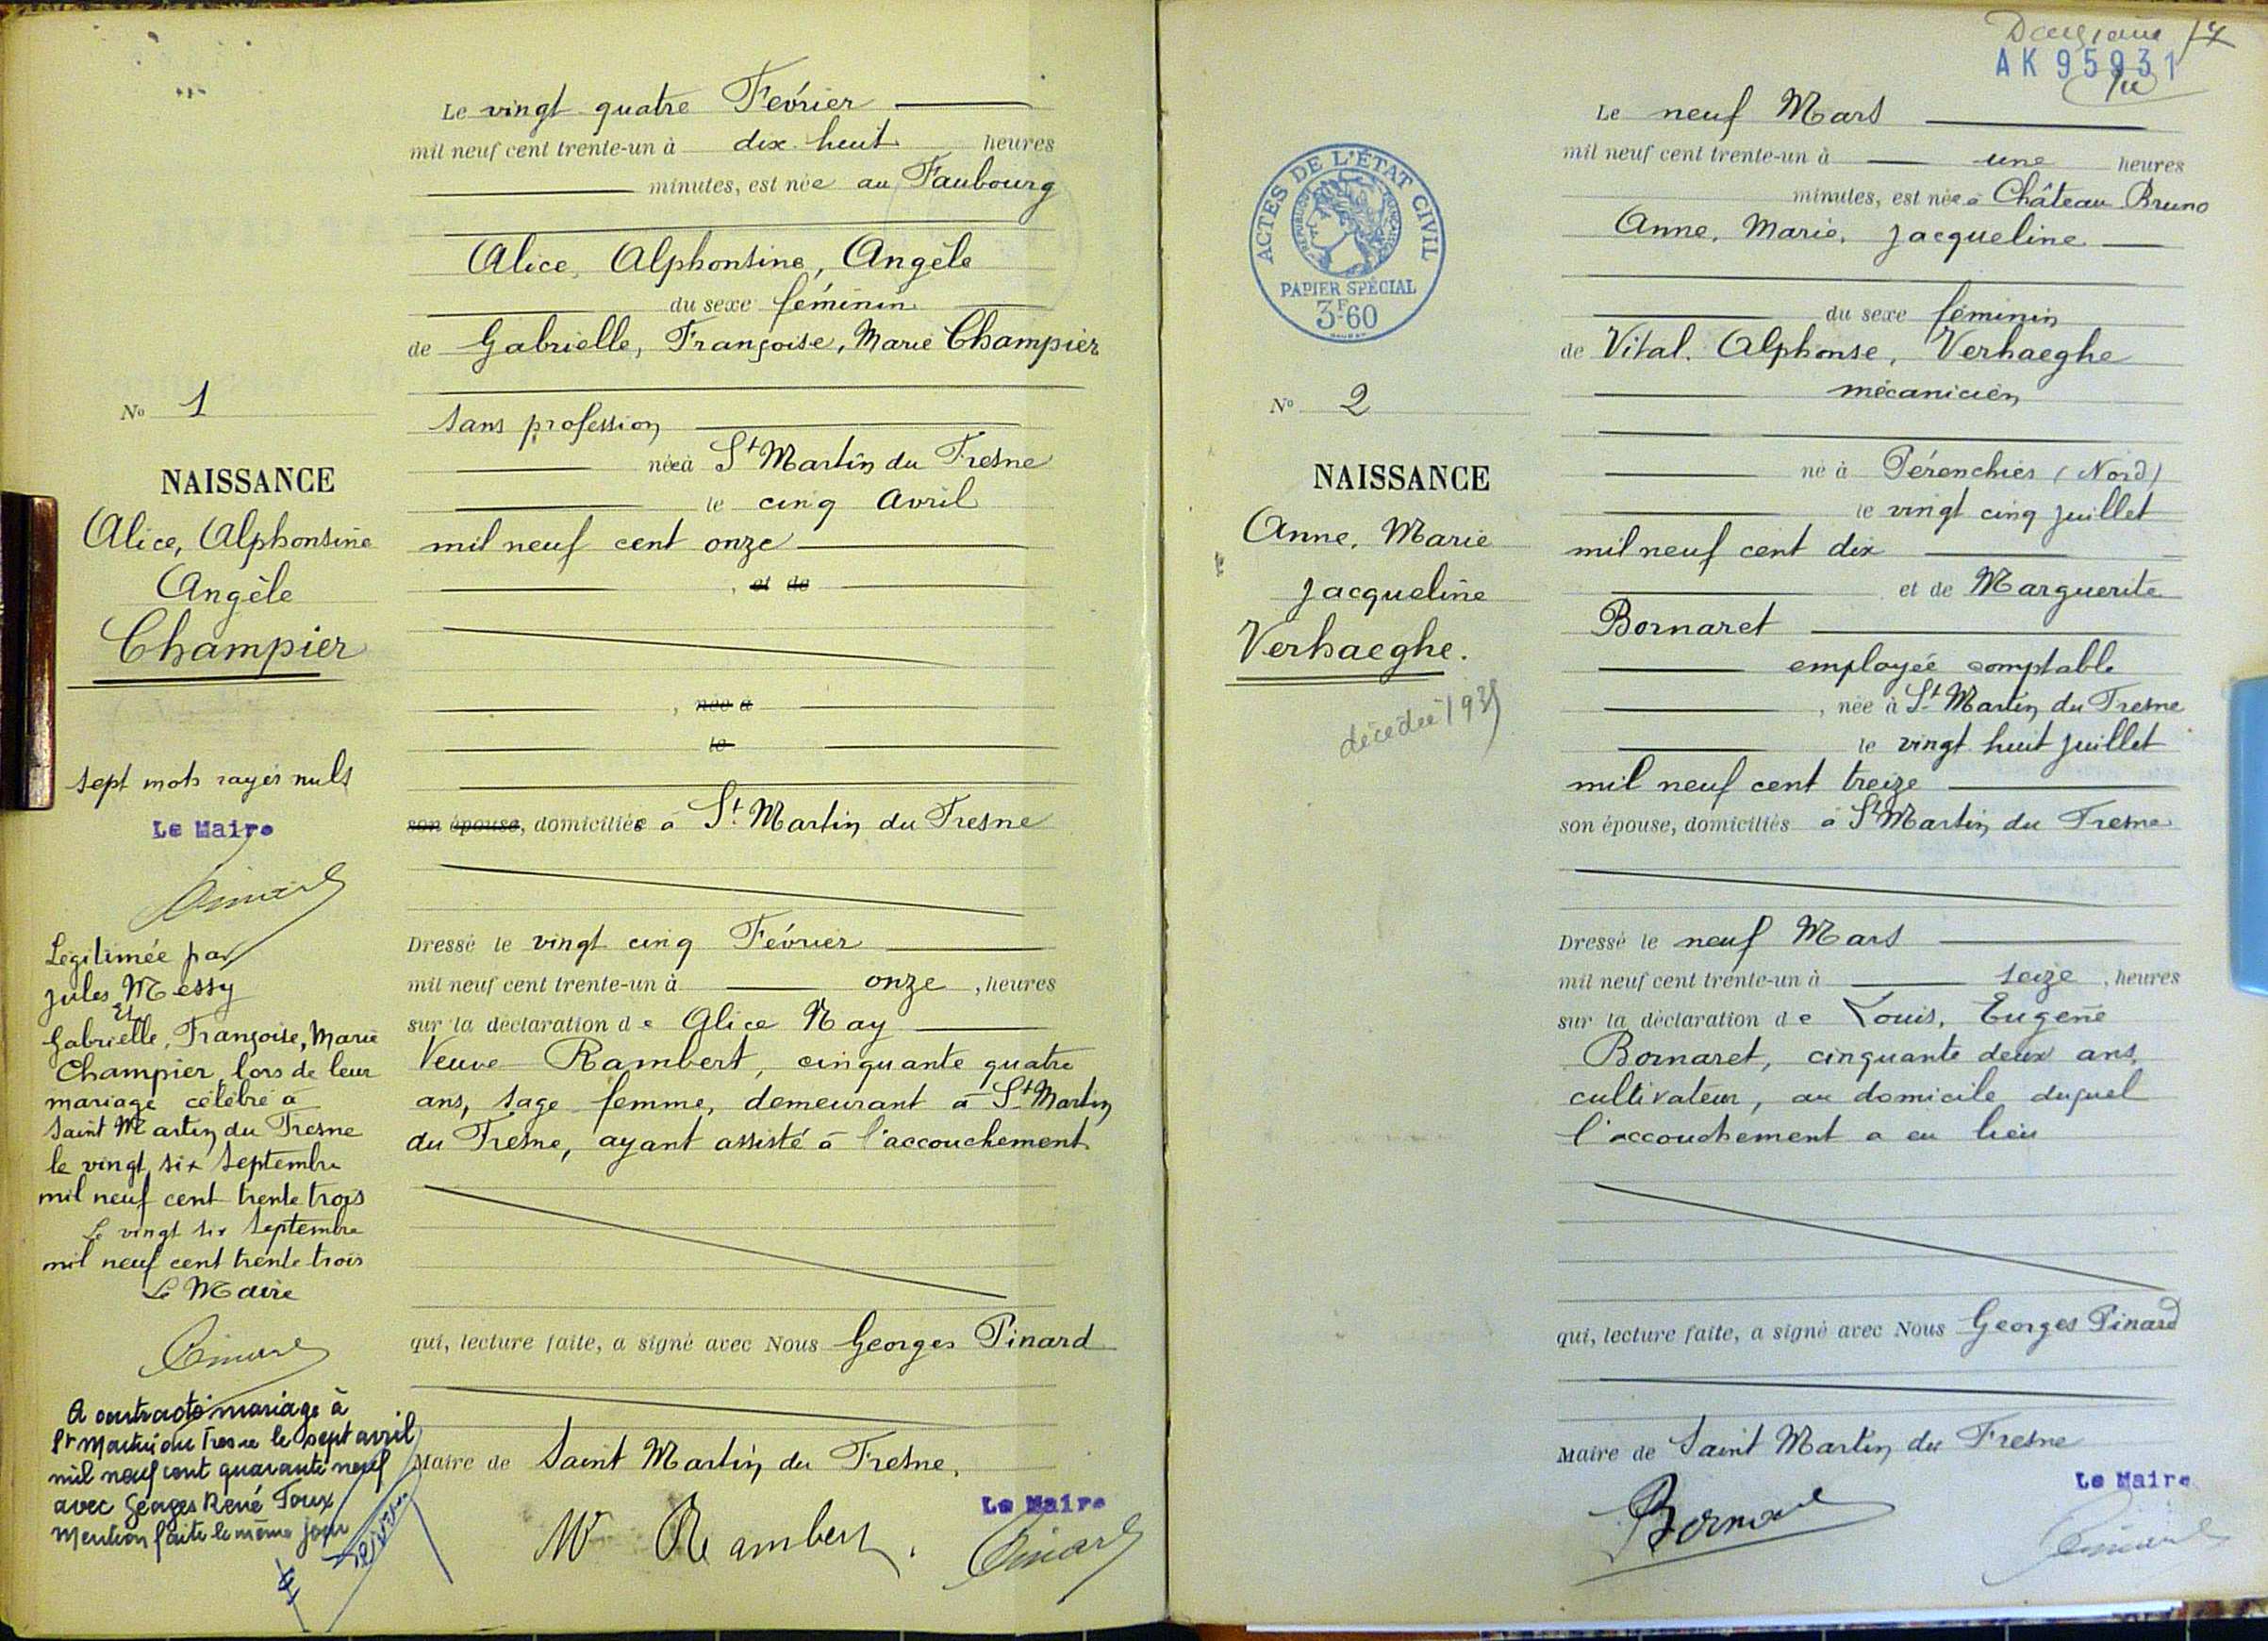 Le vingt quatre Février
mil neuf cent trente-un à dix huit heures
minutes, est née au Faubourg
Alice, Alphonsine, Angèle
du sexe féminin
de Gabrielle, Françoise, Marie Champier
sans profession
née à St Martin du Fresne
le cinq Avril
mil neuf cent onze
, et de
, née à
le
son épouse, domiciliée à St Martin du Fresne
Dressé le vingt cinq Février
mil neuf cent trente-un à onze , heures
sur la déclaration de Alice Nay
Veuve Rambert, cinquante quatre
ans, sage femme, demeurant à St Martin
du Fresne, ayant assisté à l'accouchement
qui, lecture faite, a signé avec Nous Georges Pinard
Maire de Saint Martin du Fresne.
Le Maire
Rambert.
Pinard
No 1
NAISSANCE
Alice, Alphonsine
Angèle
Champier
sept mots rayés nuls
Le Maire
Pinard
Légitimée par
Jules Messy
et
Gabrielle, Françoise, Marie
Champier, lors de leur
mariage célébré à
Saint Martin du Fresne
le vingt six Septembre
mil neuf cent trente trois
Le vingt six Septembre
mil neuf cent trente trois
Le Maire
Pinard
A contracté mariage à
St Martin du Fresne le sept avril
mil neuf cent quarante neuf
avec Georges René Toux
Mention faite le même jour
17
AK 95931
Le neuf Mars
mil neuf cent trente-un à une heures
minutes, est née à Château Bruno
Anne, Marie, Jacqueline
du sexe féminin
de Vital, Alphonse, Verhaeghe
mécanicien
né à Pérenchies (Nord)
le vingt cinq Juillet
mil neuf cent dix
et de Marguerite
Bornaret
employée comptable
, née à St Martin du Fresne
le vingt huit Juillet
mil neuf cent treize
son épouse, domiciliés à St Martin du Fresne
Dressé le neuf Mars
mil neuf cent trente-un à seize , heures
sur la déclaration de Louis, Eugène
Bornaret, cinquante deux ans,
cultivateur, au domicile duquel
l'accouchement a eu lieu
qui, lecture faite, a signé avec Nous Georges Pinard
Maire de Saint Martin du Fresne
Le Maire
Pinard
ACTES DE L'ÉTAT CIVIL
RÉPUBLIQUE FRANÇAISE
PAPIER SPÉCIAL
3F60
No 2
NAISSANCE
Anne, Marie
Jacqueline
Verhaeghe.
décédée 1935